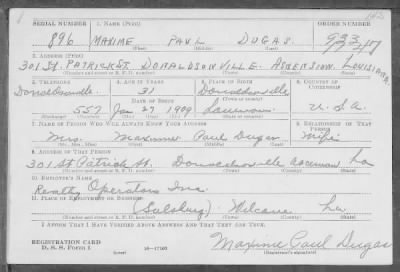 SERIAL NUMBER 1. NAME (Print) ORDER NUMBER
896 MAXIME PAUL DUGAS
(First) (Middle) (Last)
2. ADDRESS (Print)
301 St. PATRICK ST. DONALDSONVILLE. ASCENSION. LOUISIANA.
(Number and street or R. F. D. number) (Town) (County) (State)
3. TELEPHONE 4. AGE IN YEARS 5. PLACE OF BIRTH 6. COUNTRY OF CITIZENSHIP
Donaldsonville 31 Donaldsonville
DATE OF BIRTH (Town or county)
557 Jan 27 1909 Louisiana U.S.A.
(Mo.) (Day) (Yr.) (State or country)
7. NAME OF PERSON WHO WILL ALWAYS KNOW YOUR ADDRESS 8. RELATIONSHIP OF THAT PERSON
Mrs. Maxime Paul Dugas Wife
(Mr., Mrs., Miss) (First) (Middle) (Last)
9. ADDRESS OF THAT PERSON
301 St Patrick St. Donaldsonville Ascension La
(Number and street or R. F. D. number) (Town) (County) (State)
10. EMPLOYER'S NAME
Realty Operators Inc.
11. PLACE OF EMPLOYMENT OR BUSINESS
(Salsburg) La
(Number and street or R. F. D. number) (Town) (County) (State)
I AFFIRM THAT I HAVE VERIFIED ABOVE ANSWERS AND THAT THEY ARE TRUE.
REGISTRATION CARD
D. S. S. Form 1 16—17105 Maxime Paul Dugas
(Registrant's signature)